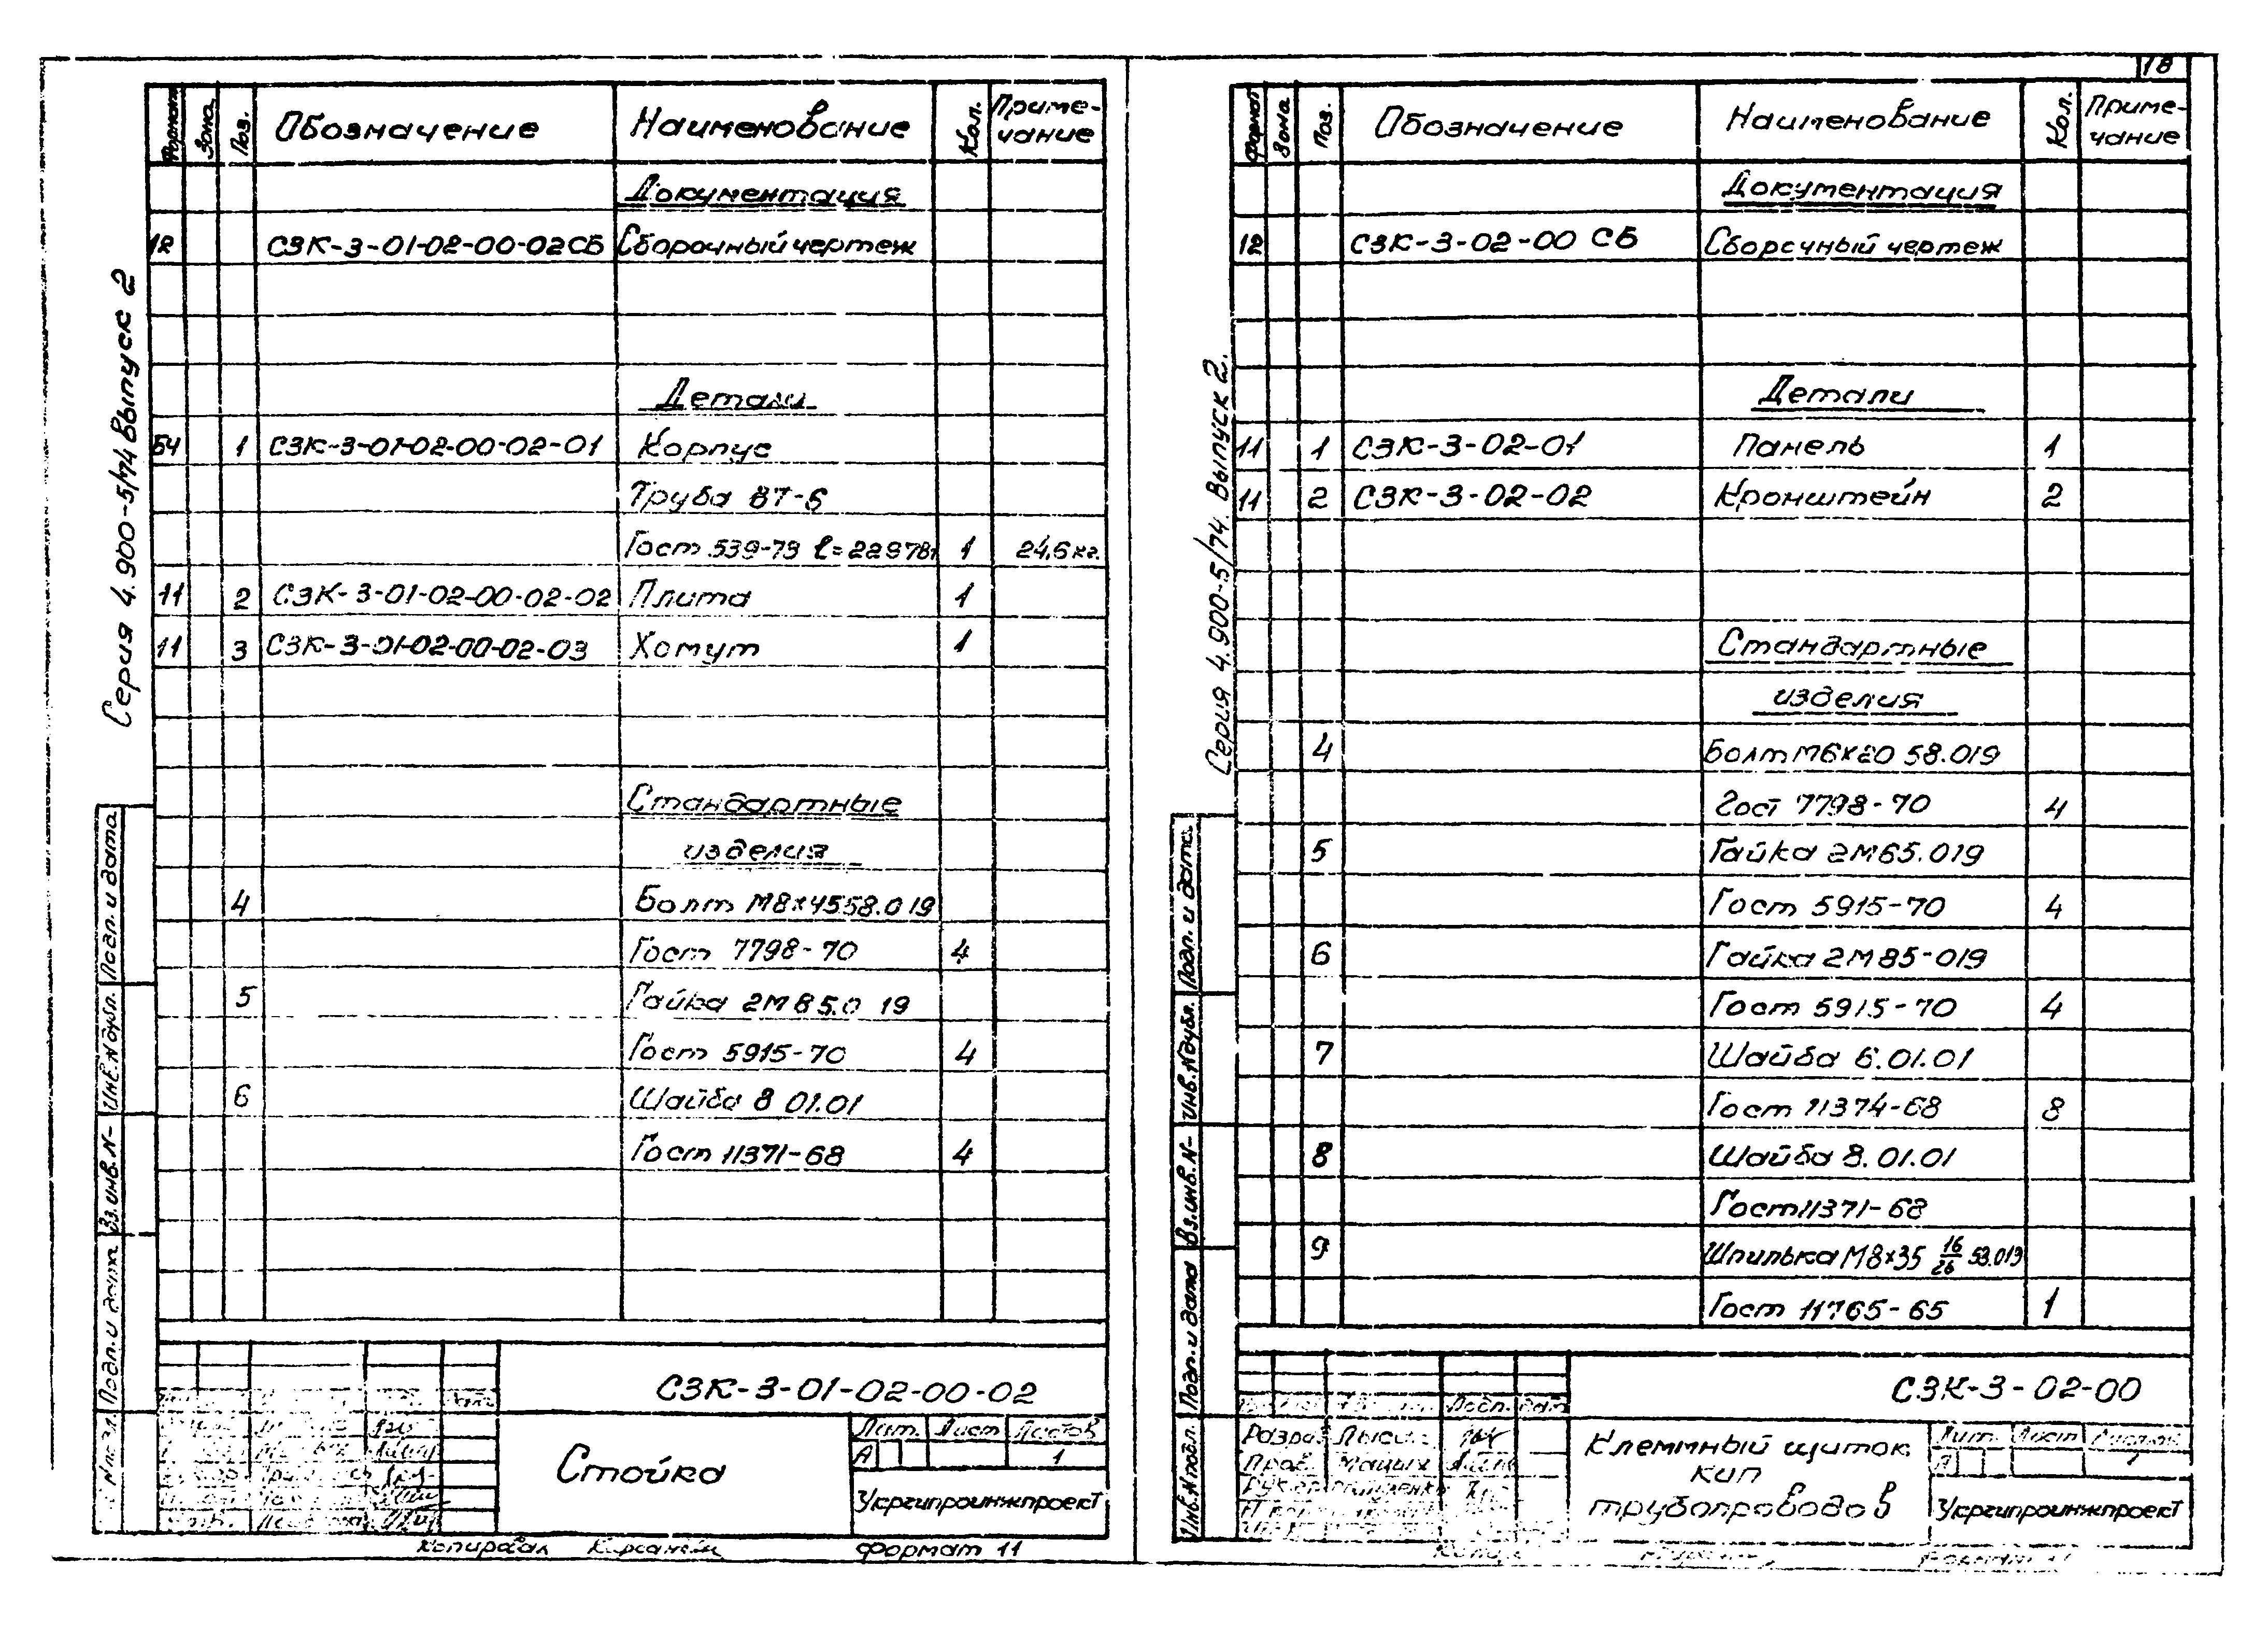 18
Серия 4.900-5/74 Выпуск 2
Формат Зона Поз. Обозначение Наименование Кол. Приме-чание
Документация
12 СЗК-3-01-02-00-02СБ Сборочный чертеж
Детали
БЧ 1 СЗК-3-01-02-00-02-01 Корпус
Труба ВТ-6
Гост 539-73 1 24,6 кг.
11 2 СЗК-3-01-02-00-02-02 Плита 1
11 3 СЗК-3-01-02-00-02-03 Хомут 1
Стандартные
изделия
4 Болт М8×4558.019
Гост 7798-70 4
5 Гайка 2М85.0 19
Гост 5915-70 4
6 Шайба 8 01.01
Гост 11371-68 4
Подп. и дата
Инв.№дубл.
Вз.инв.№
Подп. и дата
СЗК-3-01-02-00-02
Стойка
Лит. Лист Листов
А 1
Укргипроинжпроект
Копировал
Формат 11
Серия 4.900-5/74. Выпуск 2.
Формат Зона Поз. Обозначение Наименование Кол. Приме-чание
Документация
12 СЗК-3-02-00 СБ Сборочный чертеж
Детали
11 1 СЗК-3-02-01 Панель 1
11 2 СЗК-3-02-02 Кронштейн 2
Стандартные
изделия
4 Болт М6×20 58.019
Гост 7798-70 4
5 Гайка 2М65.019
Гост 5915-70 4
6 Гайка 2М85-019
Гост 5915-70 4
7 Шайба 6.01.01
Гост 11374-68 8
8 Шайба 8.01.01
Гост11371-68
9 Шпилька М8×35 16/26 58.019
Гост 11765-65 1
Подп. и дата
Инв.№дубл.
Вз.инв.№
Подп. и дата
Инв.№ подл.
СЗК-3-02-00
Клеммный щиток
КИП
трубопроводов
Лит. Лист
Укргипроинжпроект